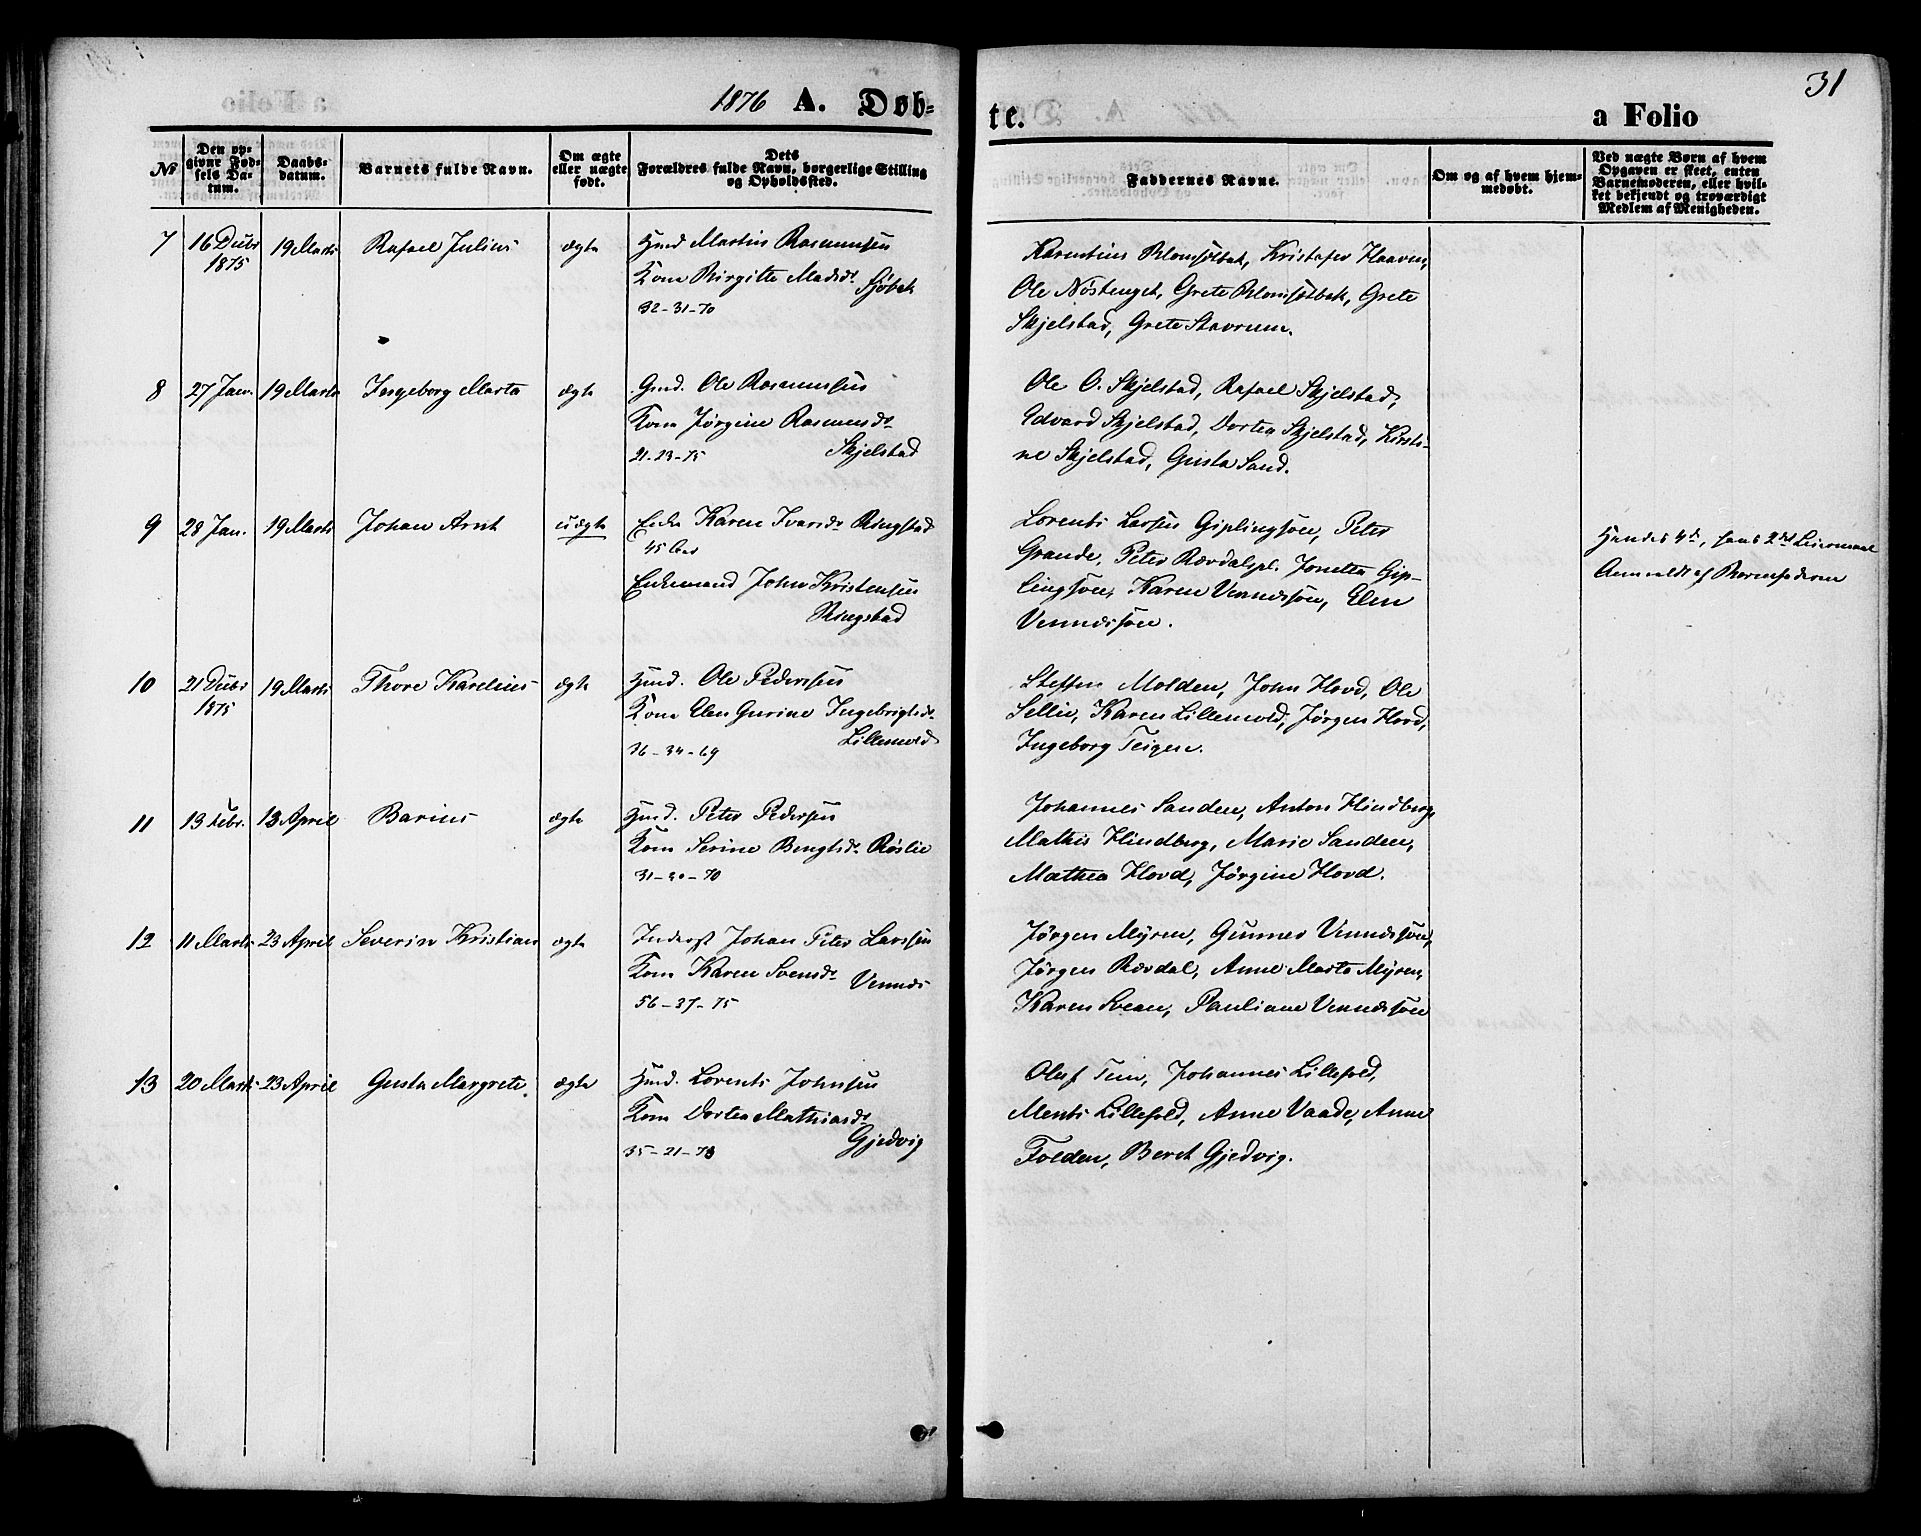 1876 A. Døb=
te.
a Folio
31
No
Den op-
givne Fød-
sels Da-
tum.
Daabs-
datum.
Barnets fulde Navn.
Om ægte
eller uægte
født.
Dets
Forældres fulde Navn, borgerlige Stilling
og Opholdssted.
Faddernes Navne.
Om og af hvem hjem-
medøbt.
Ved uægte Børn af hvem
Opgaven er skeet, enten
Barnemoderen, eller hvil-
ket bekjendt og troværdigt
Medlem af Menigheden.
7 16 Decbr 19 Marts Rafael Julius ægte Hmd Martin Rasmussen
1875 Kone Birgitte Madsdr Sjøbak
32-31-70
Karentius Blomsølbak, Kristofer Haaven,
Ole Nøstenget, Grete Blomsølbak, Grete
Skjelstad, Grete Stavrum.
8 27 Jan. 19 Marts Ingeborg Marta ægte Gmd. Ole Rasmussen
Kone Jørgine Rasmusdr
21-23-75 Skjelstad
Ole O. Skjelstad, Rafael Skjelstad,
Edvard Skjelstad, Dortea Skjelstad, Kirsti-
ne Skjelstad, Gusta Sand.
9 28 Jan. 19 Marts Johan Arnt uægte Enke Karen Ivarsdr Ringstad
45 Aar
Enkemand John Kristensen
Ringstad
Lorents Larsen Giplingsøen, Peter
Grande, Peter Rævdalspl. Jonetta Gip-
lingsøen, Karen Vennesøen, Elen
Vennessøen.
Hendes 4de, hans 2det Leiermaal
Anmeldt af Barnefaderen
10 21 Decbr 19 Marts Thore Karelius ægte Hmd. Ole Pedersen
1875 Kone Elen Gurine Ingebrigtsdr
36-34-69 Lillemold
Steffen Molden, John Hovd, Ole
Sellie, Karen Lillemold, Jørgen Hovd,
Ingeborg Teigen.
11 13 Febr. 13 April Barius ægte Hmd. Peter Pedersen
Kone Serine Bengtsdr Røslie
31-30-70
Johannes Sanden, Anton Hindberg,
Mathis Hindberg, Marie Sanden,
Mathea Hovd, Jørgine Hovd.
12 11 Marts 23 April Severin Kristian ægte Inderst Johan Peter Larssen
Kone Karen Svensdr Vennes
56-37-75
Jørgen Myren, Gunner Vennessøen,
Jørgen Rævdal, Anne Marta Myren,
Karen Svean, Pauliane Vennessøen
13 20 Marts 23 April Gusta Margrete. ægte Hmd. Lorents Johnsen
Kone Dortea Mathiasdr
35-21-73 Gjedvig
Oluf Tun, Johannes Lillefold,
Ments Lillefold, Anne Vaade, Anne
Folden, Beret Gjedvig.